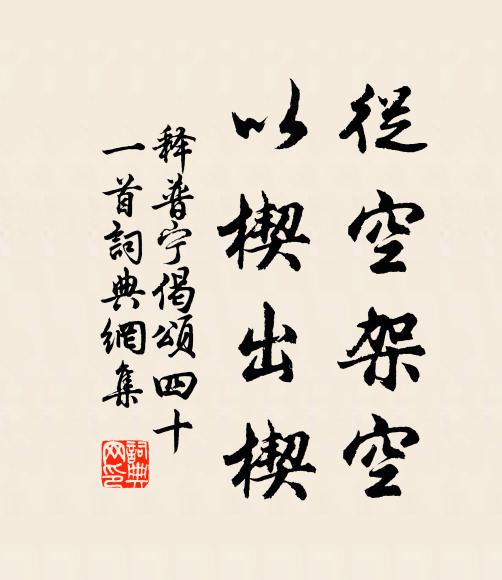 從空架空
以楔出楔
释普宁偈頌四十
一首詞典網集
詞典网印